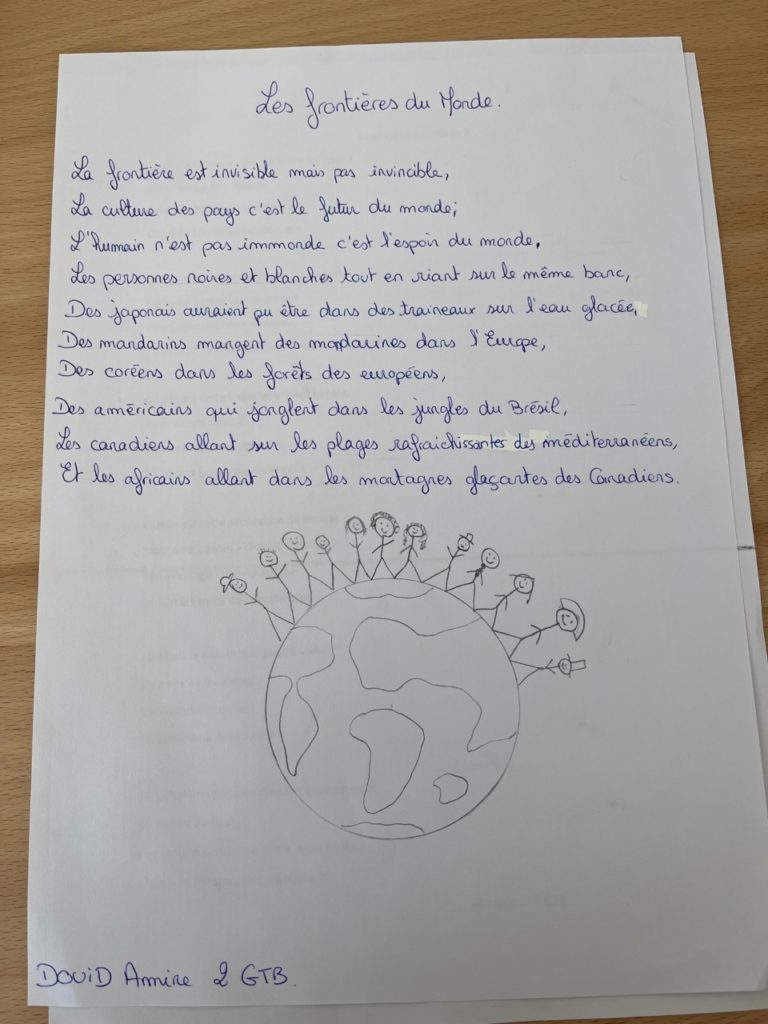 Les frontières du Monde.
La frontière est invisible mais pas invincible,
La culture des pays c'est le futur du monde;
L'humain n'est pas immonde c'est l'espoir du monde,
Les personnes noires et blanches tout en riant sur le même banc,
Des japonais auraient pu être dans des traineaux sur l'eau glacée,
Des mandarins mangent des mandarines dans l'Europe,
Des coréens dans les forêts des européens,
Des américains qui jonglent dans les jungles du Brésil,
Les canadiens allant sur les plages rafraichissantes des méditerranéens,
Et les africains allant dans les montagnes glaçantes des Canadiens.
DOUiD Amire 2 GTB.